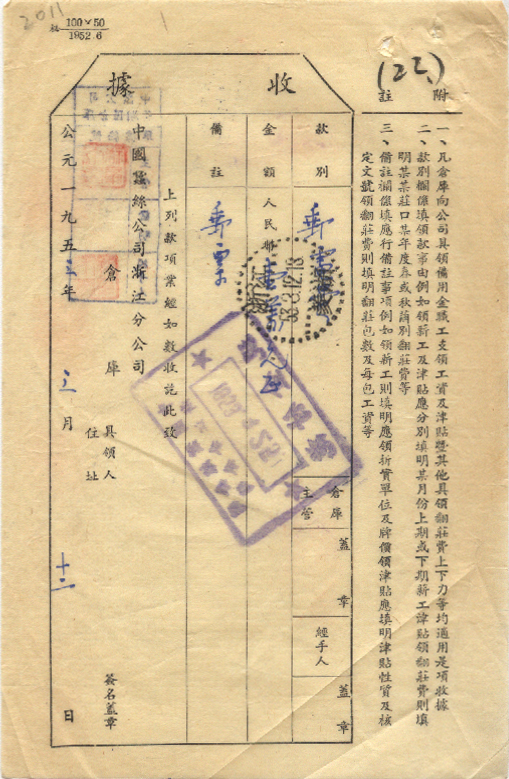 2011
100×50
1952.6
(22)
附註
一、凡倉庫向公司具領備用金職工支領工資及津貼暨其他具領翻莊費上下力等均適用是項收據
二、款別欄應填領款事由例如領薪工及津貼應分別填明某月份上期或下期薪工津貼領翻莊費則填
明某某莊口某年度春或秋繭別翻莊費等
三、備註欄應填應行備註事項例如領薪工則填明應領折實單位及牌價領津貼應填明津貼性質及核
定文號領翻莊費則填明翻莊包數及每包工資等
收據
款別 郵票 倉庫主管 蓋章 經手人 蓋章
金額 人民幣
備註 郵票
上列款項業經如數收訖此致
中國蠶絲公司浙江分公司
倉庫 具領人 簽名蓋章
住址
公元一九五三年三月十二日
浙江
53.3.12.18